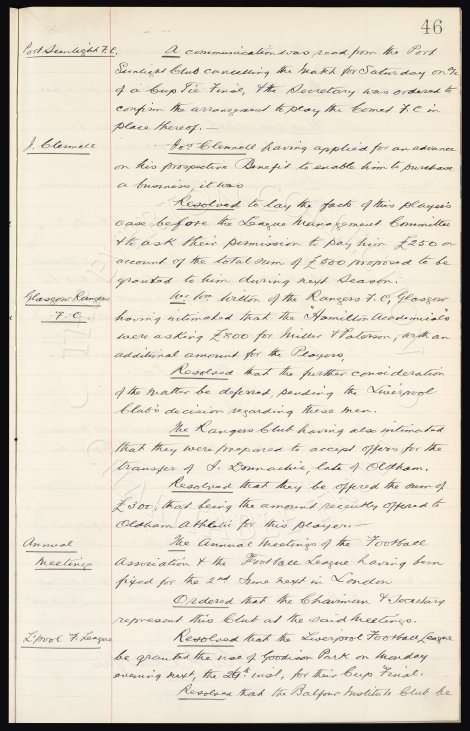 46
Port Sunlight F.C. A communication was read from the Port
Sunlight Club cancelling the Match for Saturday on a/c
of a Cup Tie Final, & the Secretary was ordered to
confirm the arrangement to play the Comet F.C in
place thereof. —
J. Clennell Jos. Clennell having applied for an advance
on his prospective Benefit to enable him to purchase
a business, it was
Resolved to lay the facts of this player's
case before the League Management Committee
& to ask their permission to pay him £250 on
account of the total sum of £500 proposed to be
granted to him during next Season.
Glasgow Rangers Wm Wilton of the Rangers F.C, Glasgow
F.C. having intimated that the "Hamilton Academicals"
were asking £800 for Miller & Paterson, with an
additional amount for the Players,
Resolved that the further consideration
of the matter be deferred, pending the Liverpool
Club's decision regarding these men.
The Rangers Club having also intimated
that they were prepared to accept offers for the
transfer of J. Donnachie, late of Oldham.
Resolved that they be offered the sum of
£300, that being the amount recently offered to
Oldham Athletic for this player. —
Annual The Annual Meetings of the Football
Meetings Association & the Football League having been
fixed for the 2nd June next in London
Ordered that the Chairman & Secretary
represent this Club at the said Meetings.
L'pool F. League Resolved that the Liverpool Football League
be granted the use of Goodison Park on Monday
evening next, the 29th inst, for their Cup Final.
Resolved that the Balfour Institute Club be